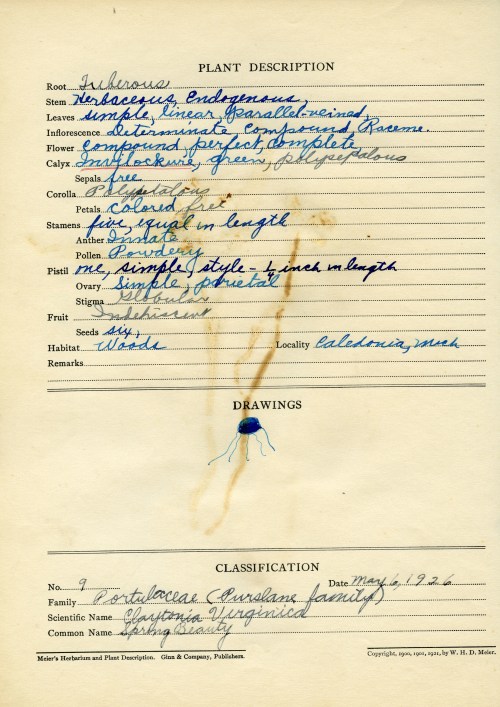 PLANT DESCRIPTION
Root Tuberous
Stem Herbaceous, Endogenous,
Leaves simple, linear, parallel-veined,
Inflorescence Determinate, compound, Raceme.
Flower compound, perfect, complete
Calyx green, polysepalous
Sepals free
Corolla Polypetalous
Petals colored free
Stamens five, equal in length
Anther Innate
Pollen Powdery
Pistil one, simple, style - 1/4 inch in length
Ovary simple, parietal
Stigma Globular
Fruit Indehiscent
Seeds six,
Habitat Woods Locality Caledonia, Mich
Remarks
DRAWINGS
CLASSIFICATION
No. 9 Date May 6, 1926
Family Portulaceae (Purslane family)
Scientific Name Claytonia Virginica
Common Name Spring Beauty
Meier's Herbarium and Plant Description. Ginn & Company, Publishers. Copyright, 1900, 1901, 1921, by W. H. D. Meier.